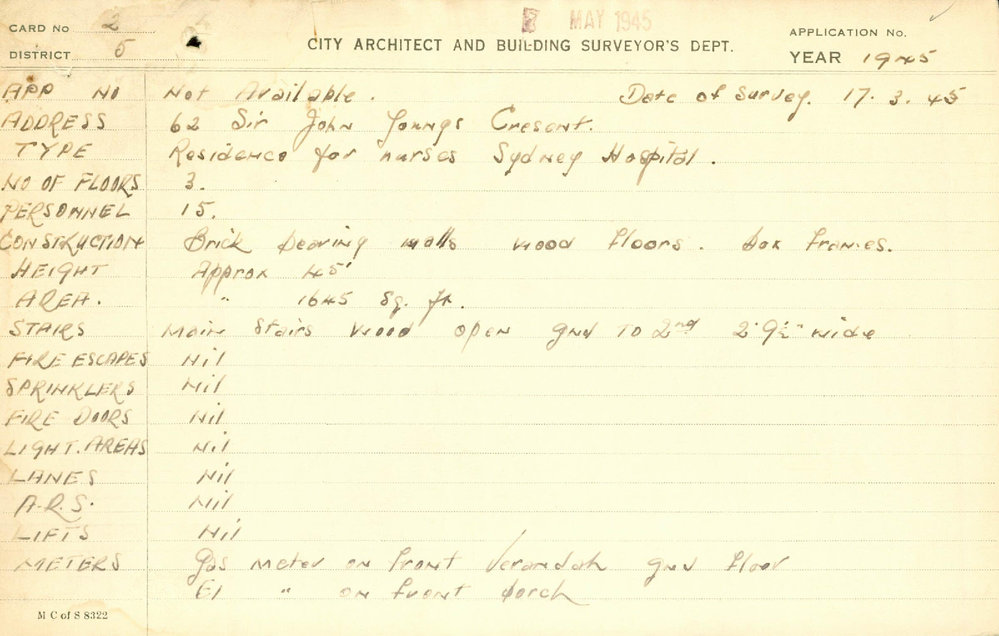 CARD No 2
8 MAY 1945
APPLICATION No.
DISTRICT 5
CITY ARCHITECT AND BUILDING SURVEYOR'S DEPT.
YEAR 1945
APP NO Not Available. Date of Survey. 17.3.45
ADDRESS 62 Sir John Youngs Cresent.
TYPE Residence for nurses Sydney Hospital.
NO OF FLOORS 3.
PERSONNEL 15.
CONSTRUCTION Brick bearing walls wood floors. box frames.
HEIGHT Approx 45'
AREA. " 1645 sq. ft.
STAIRS Main Stairs wood open gnd to 2nd 2' 9½" wide
FIRE ESCAPES Nil
SPRINKLERS Nil
FIRE DOORS Nil
LIGHT. AREAS Nil
LANES Nil
A.R.S. Nil
LIFTS Nil
METERS Gas meter on front verandah gnd floor
El " on front porch
M C of S 8322